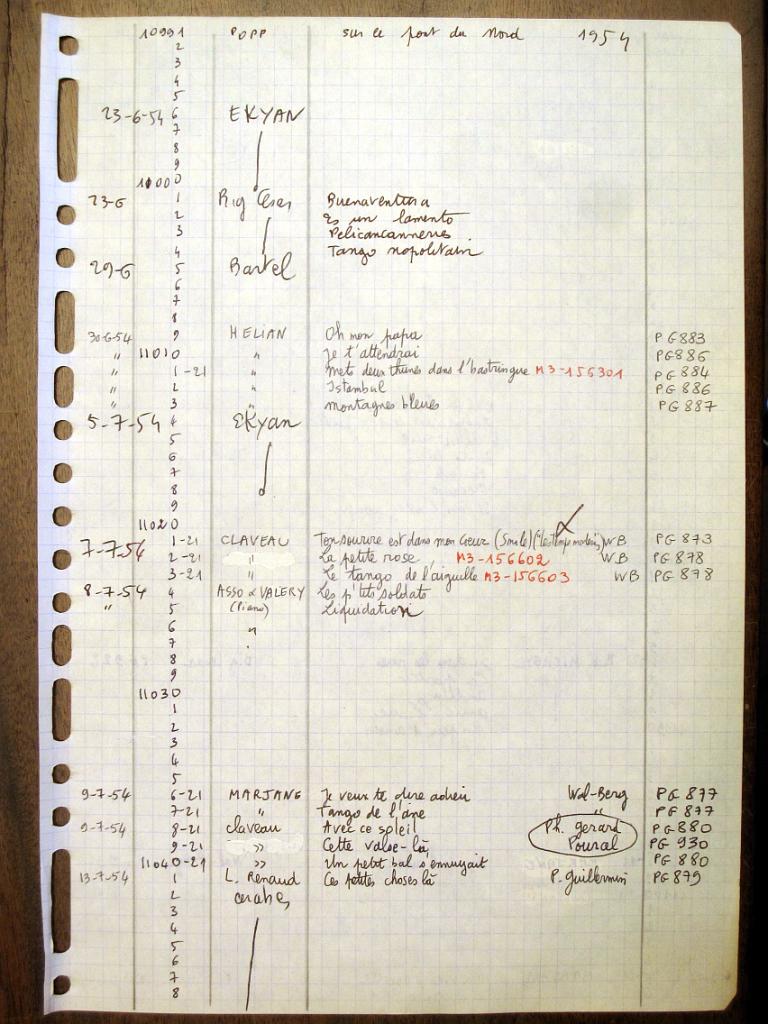 10991 POPP sur le pont du Nord 1954
2
3
4
5
23-6-54 6 EKYAN
7
8
9
11000
23-6 1 Rig Cesar Buenaventura
2 Es un lamento
3 Pelicancanneries
4 Tango napolitain
29-6 5 Bartel
6
7
8
30-6-54 9 HELIAN Oh mon papa PG 883
" 11010 " Je t'attendrai PG 886
" 1-21 " Mets deux thunes dans l'bastringue M3-156301 PG 884
" 2 " Istambul PG 886
" 3 " montagnes bleues PG 887
5-7-54 4 EKyan
5
6
7
8
9
11020
7-7-54 1-21 CLAVEAU Ton sourire est dans mon Coeur (Smile) ("les temps modernes") WB PG 873
2-21 " La petite rose M3-156602 WB PG 878
3-21 " Le tango de l'aiguille M3-156603 WB PG 878
8-7-54 4 ASSO & VALERY Les p'tits soldats
" 5 (Piano) Liquidation
6 "
7
8
9
11030
1
2
3
4
5
9-7-54 6-21 MARJANE Je veux te dire adieu Wal-Berg PG 877
7-21 " Tango de l'âne " PG 877
9-7-54 8-21 Claveau Avec ce soleil Ph. Gerard PG 880
9-21 " Cette valse-là Pourcel PG 930
11040-21 " Un petit bal s'ennuyait PG 880
13-7-54 1 L. Renaud Ces petites choses là P. Guillermin PG 879
2 arabes
3
4
5
6
7
8